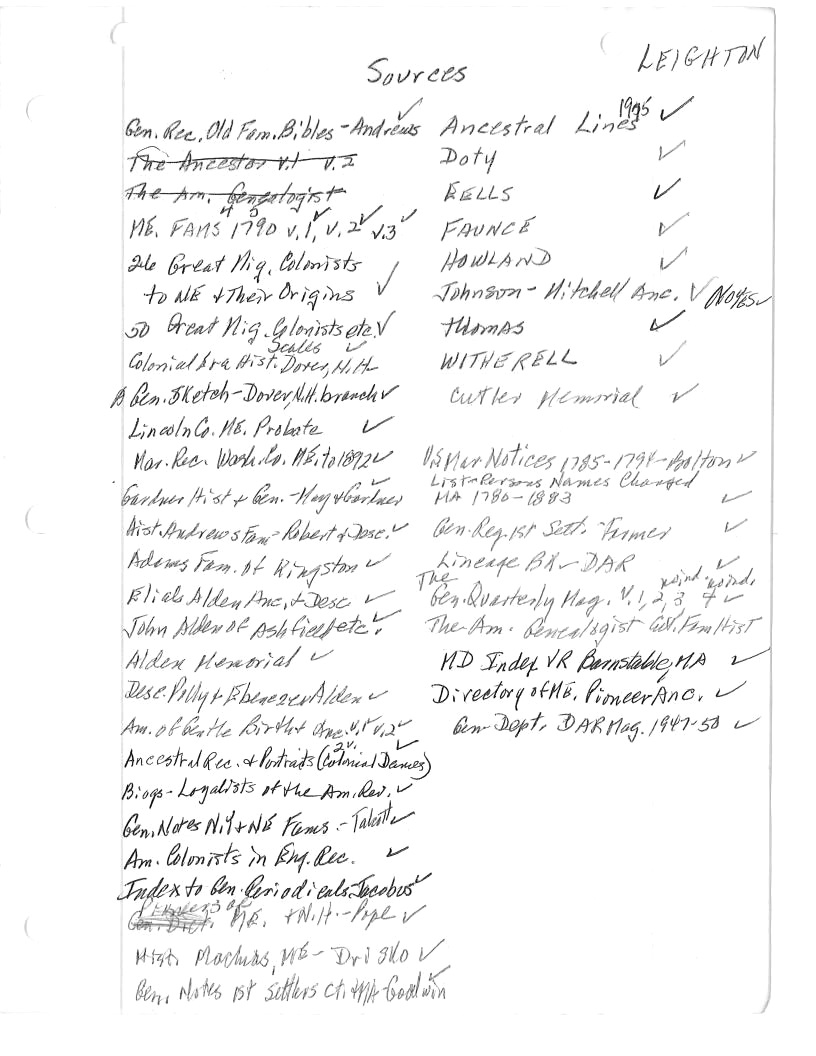 LEIGHTON
Sources
Gen. Rec. Old Fam. Bibles - Andrews ✓
The Ancestor v.1 v.2
The Am. Genealogist
ME. FAMS 1790 v.1, v.2 ✓ v.3 ✓ 4 5
26 Great Mig. Colonists
to NE & Their Origins ✓
50 Great Mig. Colonists etc. ✓
Scales ✓
Colonial Era Hist. Dover, N.H.
Gen. Sketch - Dover, N.H. branch ✓
Lincoln Co. ME. Probate ✓
Mar. Rec. Wash. Co. ME. to 1892 ✓
Gardner Hist & Gen. - May & Gardner ✓
Hist. Andrews Fam - Robert & Desc. ✓
Adams Fam. of Kingston ✓
Elials Alden Anc. & Desc ✓
John Alden of Ashfield etc. ✓
Alden Memorial ✓
Desc. Polly & Ebenezer Alden ✓
Am. of Gentle Birth & Anc. v.1 ✓ v.2 ✓
2 v. ✓
Ancestral Rec. & Portraits (Colonial Dames)
Biogs - Loyalists of the Am. Rev. ✓
Gen. Notes N.Y & NE Fams. - Talcott ✓
Am. Colonists in Eng. Rec. ✓
Index to Gen. Periodicals Jacobus ✓
Pioneers of
Gen. Dict. ME. & N.H. - Pope ✓
Hist. Machias, ME - Drisko ✓
Gen. Notes 1st Settlers Ct. & MA - Goodwin ✓
1995
Ancestral Lines ✓
Doty ✓
EELLS ✓
FAUNCE ✓
HOWLAND ✓
Johnson - Mitchell Anc. ✓ Notes ✓
Thomas ✓
WITHERELL ✓
Cutler Memorial ✓
US Mar Notices 1785-1794 - Bolton ✓
List - Persons Names Changed
MA 1780-1883 ✓
Gen. Reg. 1st Sett. - Farmer ✓
Lineage BK - DAR ✓
The
Gen. Quarterly Mag. V. 1, 2, 3 4 ✓
The Am. Genealogist Fam Hist
MD Index VR Barnstable, MA ✓
Directory of ME. Pioneer Anc. ✓
Gen. Dept. DAR Mag. 1947-50 ✓